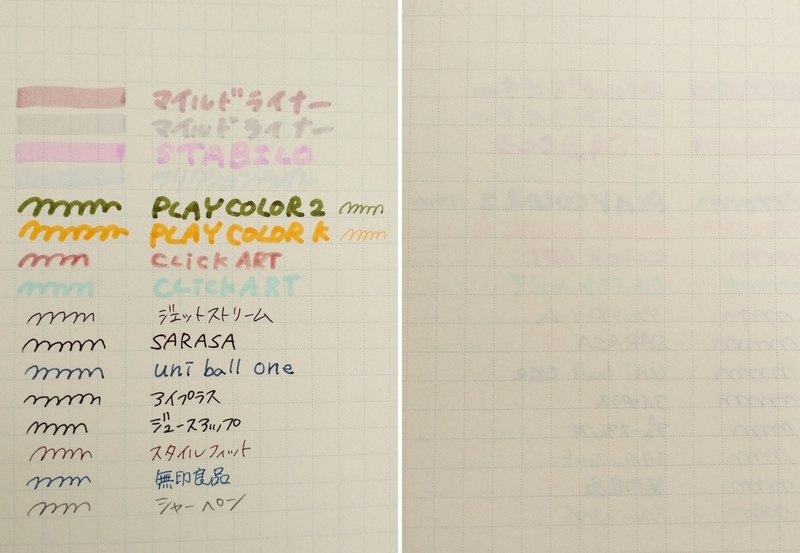 マイルドライナー
マイルドライナー
STABILO
フリクションライト
PLAYCOLOR 2
PLAY COLOR K
CLiCK ART
CLiCK ART
ジェットストリーム
SARASA
uni ball one
アイプラス
ジュースアップ
スタイルフィット
無印良品
シャーペン